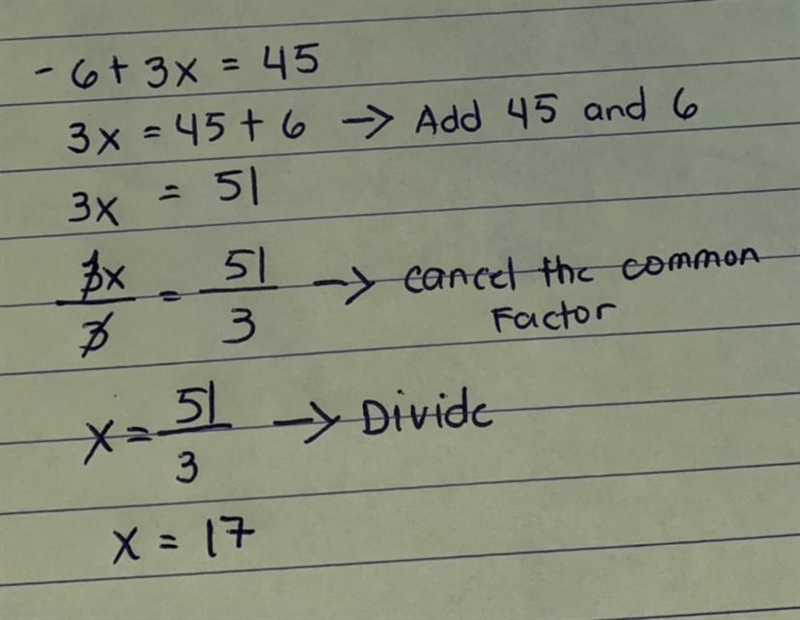 - 6 + 3x = 45
3x = 45 + 6 → Add 45 and 6
3x = 51
3x/3 = 51/3 → cancel the common
Factor
x = 51/3 → Divide
x = 17